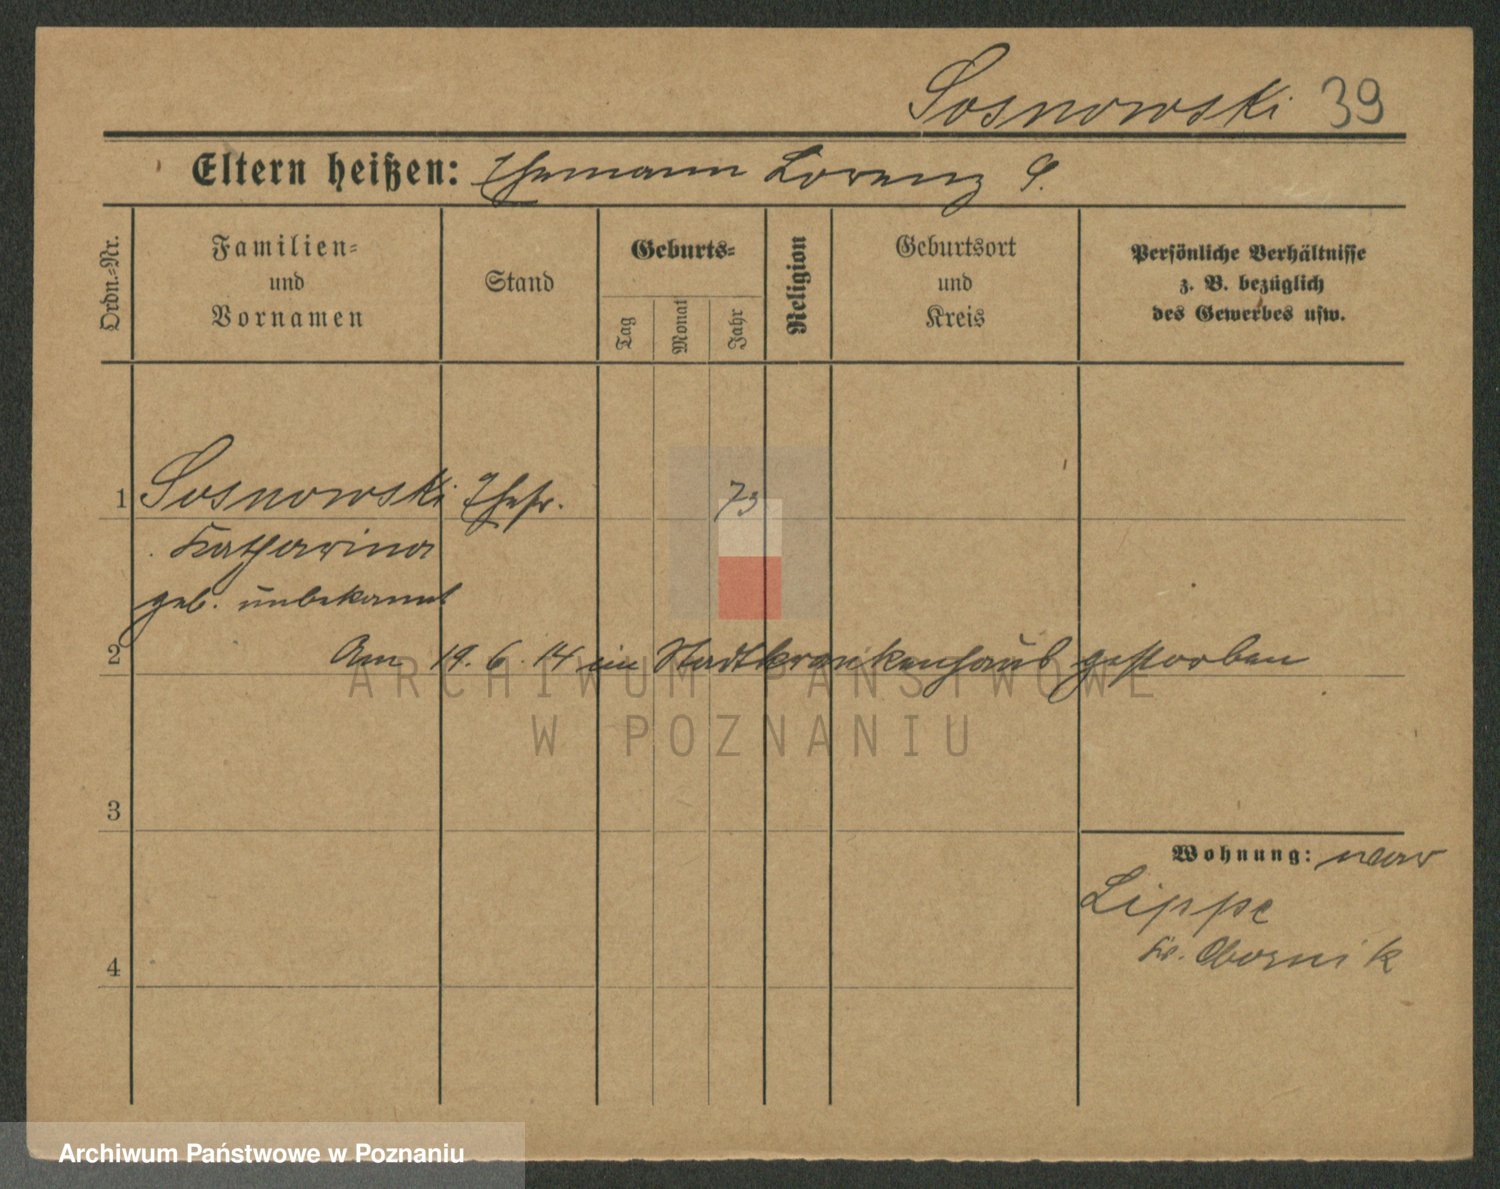 Sosnowski 39
Eltern heißen: Ehemann Lorenz S.
Ordn.-Nr.
Familien-
und
Vornamen
Stand
Geburts-
Tag
Monat
Jahr
Religion
Geburtsort
und
Kreis
Persönliche Verhältnisse
z. B. bezüglich
des Gewerbes usw.
1 Sosnowski Ehefr. 73
Katharina
geb. unbekannt
2 Am 19. 6. 14 im Stadtkrankenhaus gestorben
ARCHIWUM PAŃSTWOWE
W POZNANIU
3
Wohnung: war
Lippe
Kr. Obornik
4
Archiwum Państwowe w Poznaniu